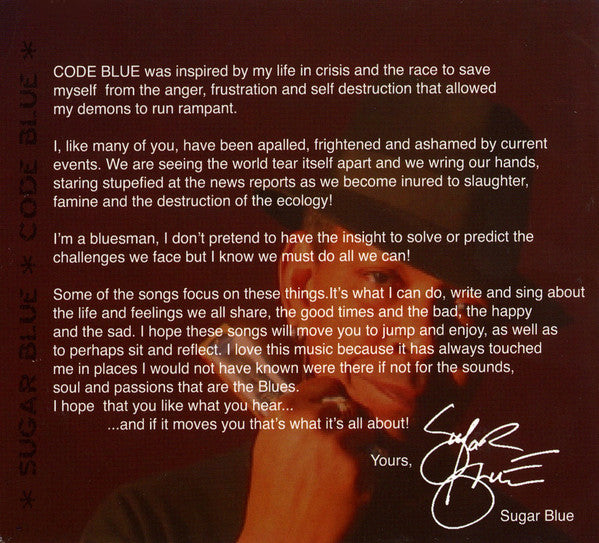 * SUGAR BLUE * CODE BLUE *
CODE BLUE was inspired by my life in crisis and the race to save
myself from the anger, frustration and self destruction that allowed
my demons to run rampant.
I, like many of you, have been apalled, frightened and ashamed by current
events. We are seeing the world tear itself apart and we wring our hands,
staring stupefied at the news reports as we become inured to slaughter,
famine and the destruction of the ecology!
I'm a bluesman, I don't pretend to have the insight to solve or predict the
challenges we face but I know we must do all we can!
Some of the songs focus on these things.It's what I can do, write and sing about
the life and feelings we all share, the good times and the bad, the happy
and the sad. I hope these songs will move you to jump and enjoy, as well as
to perhaps sit and reflect. I love this music because it has always touched
me in places I would not have known were there if not for the sounds,
soul and passions that are the Blues.
I hope that you like what you hear...
...and if it moves you that's what it's all about!
Yours,
Sugar Blue
Sugar Blue